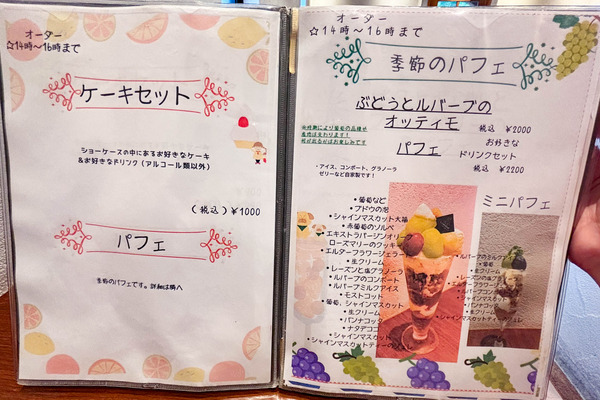 オーダー
☆14時～16時まで
ケーキセット
ショーケースの中にあるお好きなケーキ
&お好きなドリンク(アルコール類以外)
(税込)¥1000
パフェ
季節のパフェです。詳細は隣へ
オーダー
☆14時～16時まで
季節のパフェ
ぶどうとルバーブの
オッティモ
パフェ
税込 ¥2000
お好きな
ドリンクセット
税込 ¥2200
・アイス、コンポート、グラノーラ
ゼリーなど自家製です!
ミニパフェ
・葡萄など
・ブドウの花
・シャインマスカット大福
・赤葡萄のソルベ
・エキストラバージンオリ
・ローズマリーのクッキ
・エルダーフラワージェラー
・生クリーム
・レーズンと塩グラノーラ
・ルバーブのコンポート
・ルバーブミルクアイス
・モストコット
・葡萄、シャインマスカット
・生クリーム
・パンナコッタ
・ナタデココ
・シャインマスカット
・シャインマスカットティーの
・ルバーブのミルク
・葡萄
・生クリーム
・レーズンの塩
・エルダーフラワー
・シャインマスカット
・パンナコッタ
・生クリーム